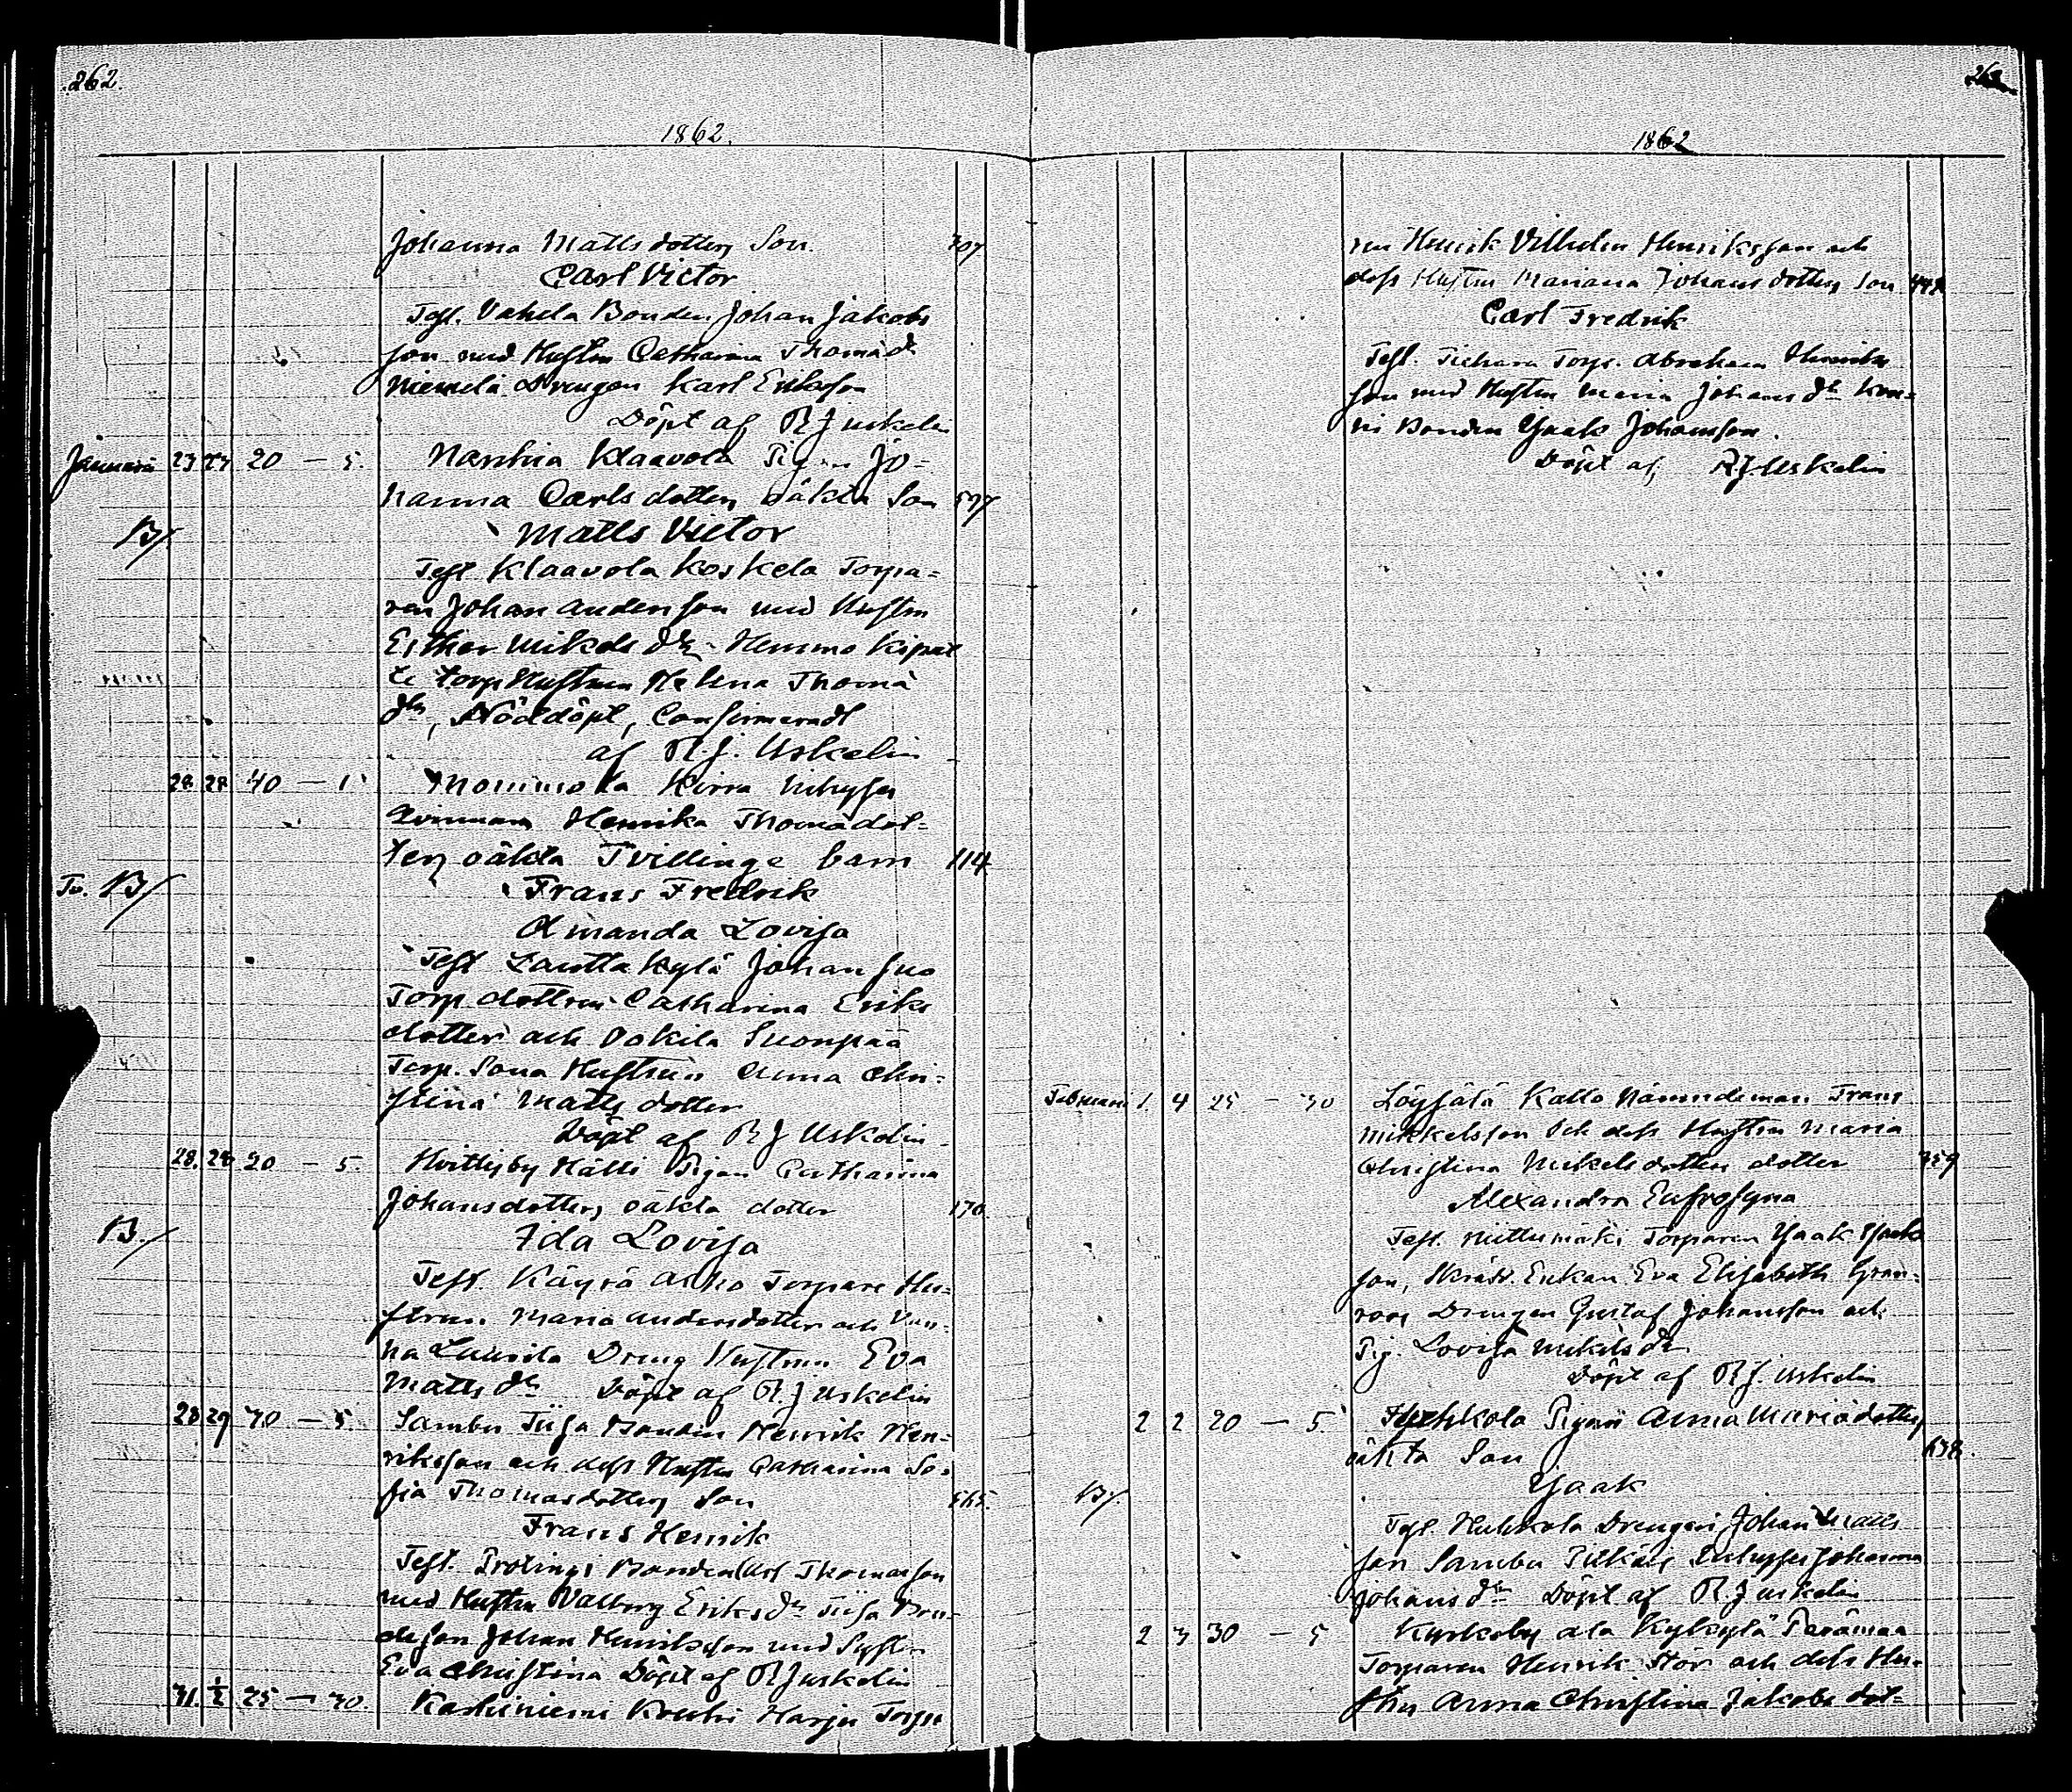 262.
1862.
Johanna Matts dotters Son. 707
Carl Victor
Test. Vahela Bonden Johan Jakobs
son med Hustru Catharina Thomæ dr
Niemelä Drengen Karl Eriksson
Döpt af R J Uskelin
Januarii 23 27 20 — 5. Klaavola Pigan Jo-
hanna Carls dotters oäkta Son 597
B/ Matts Victor
Test Klaavola Koskela Torpa-
ren Johan Andersson med Hustru
Esther Mikels dr Hemmo
te Torp Hustrun Helena Thomæ
dtr, Nöddöpt, Confirmeradt
af R. J. Uskelin
28 28 40 — 1 Mommola Kirra Inhyses
Qvinnan Henrika Thomædot-
ters oäkta Tvillinge barn 114
Tv. B/ Frans Fredrik
Amanda Lovisa
Test Lautta Kylä Johan Suo
Torp dottren Catharina Eriks
dotter och Suonpää
Torp. Sona Hustrun Anna Chri-
stina Matts dotter
Döpt af R J Uskelin
28. 28 20 — 5. Hvittisby Hälli Pigan Catharina
Johansdotters oäkta dotter 170.
B./ Ida Lovisa
Test. Käyrä Asko Torpare Hu-
strun Maria Andersdotter och
na Laurila Dreng Hustrun Eva
Matts dr Döpt af R. J Uskelin
28 29 40 — 5. Sambu Tiisa Bonden Henrik Hen-
riksson och dess Hustru Catharina So-
fia Thomasdotters Son 565.
Frans Henrik
Test. Bonden Carl Thomasson
med Hustru Valborg Eriks dr Tiisa Bon-
deson Johan Henriksson med Syster
Eva Christina Döpt af R J Uskelin
31. 1/2 25 — 30. Karhiniemi Krouvi Harju Torpa
1862
ren Henrik Vilhelm Henriksson och
dess Hustru Mariana Johans dotters Son 442
Carl Fredrik
Test. Torp. Abraham Henriks
son med Hustru Maria Johans dr
ni Bonden Isaak Johansson.
Döpt af R. J. Uskelin
Februari 1. 4 25 — 30 Löysälä Kallo Nämndeman Frans
Mikkelsson Och dess Hustru Maria
Christina Mikels dotters dotter 359
Alexandra Eufrosyna
Test. Niittumäki Torparen Isaak Isaks
son, Skrädd. Enkan Eva Elisabeth Gran-
roos Drengen Gustaf Johansson och
Pig. Lovisa Mikels dr
Döpt af R J. Uskelin
2 2 20 — 5. Huhkola Pigan Anna Mariædotters
oäkta Son 638.
B/. Isaak
Test. Huhkola Drengen Johan Matts
son Sambu Inhyses Johanna
Johans dr Döpt af R J Uskelin
2 3 30 — 5 Kyrkoby ala Kylä Perämaa
Torparen Henrik Stör och dess Hu-
stru Anna Christina Jakobs dot-